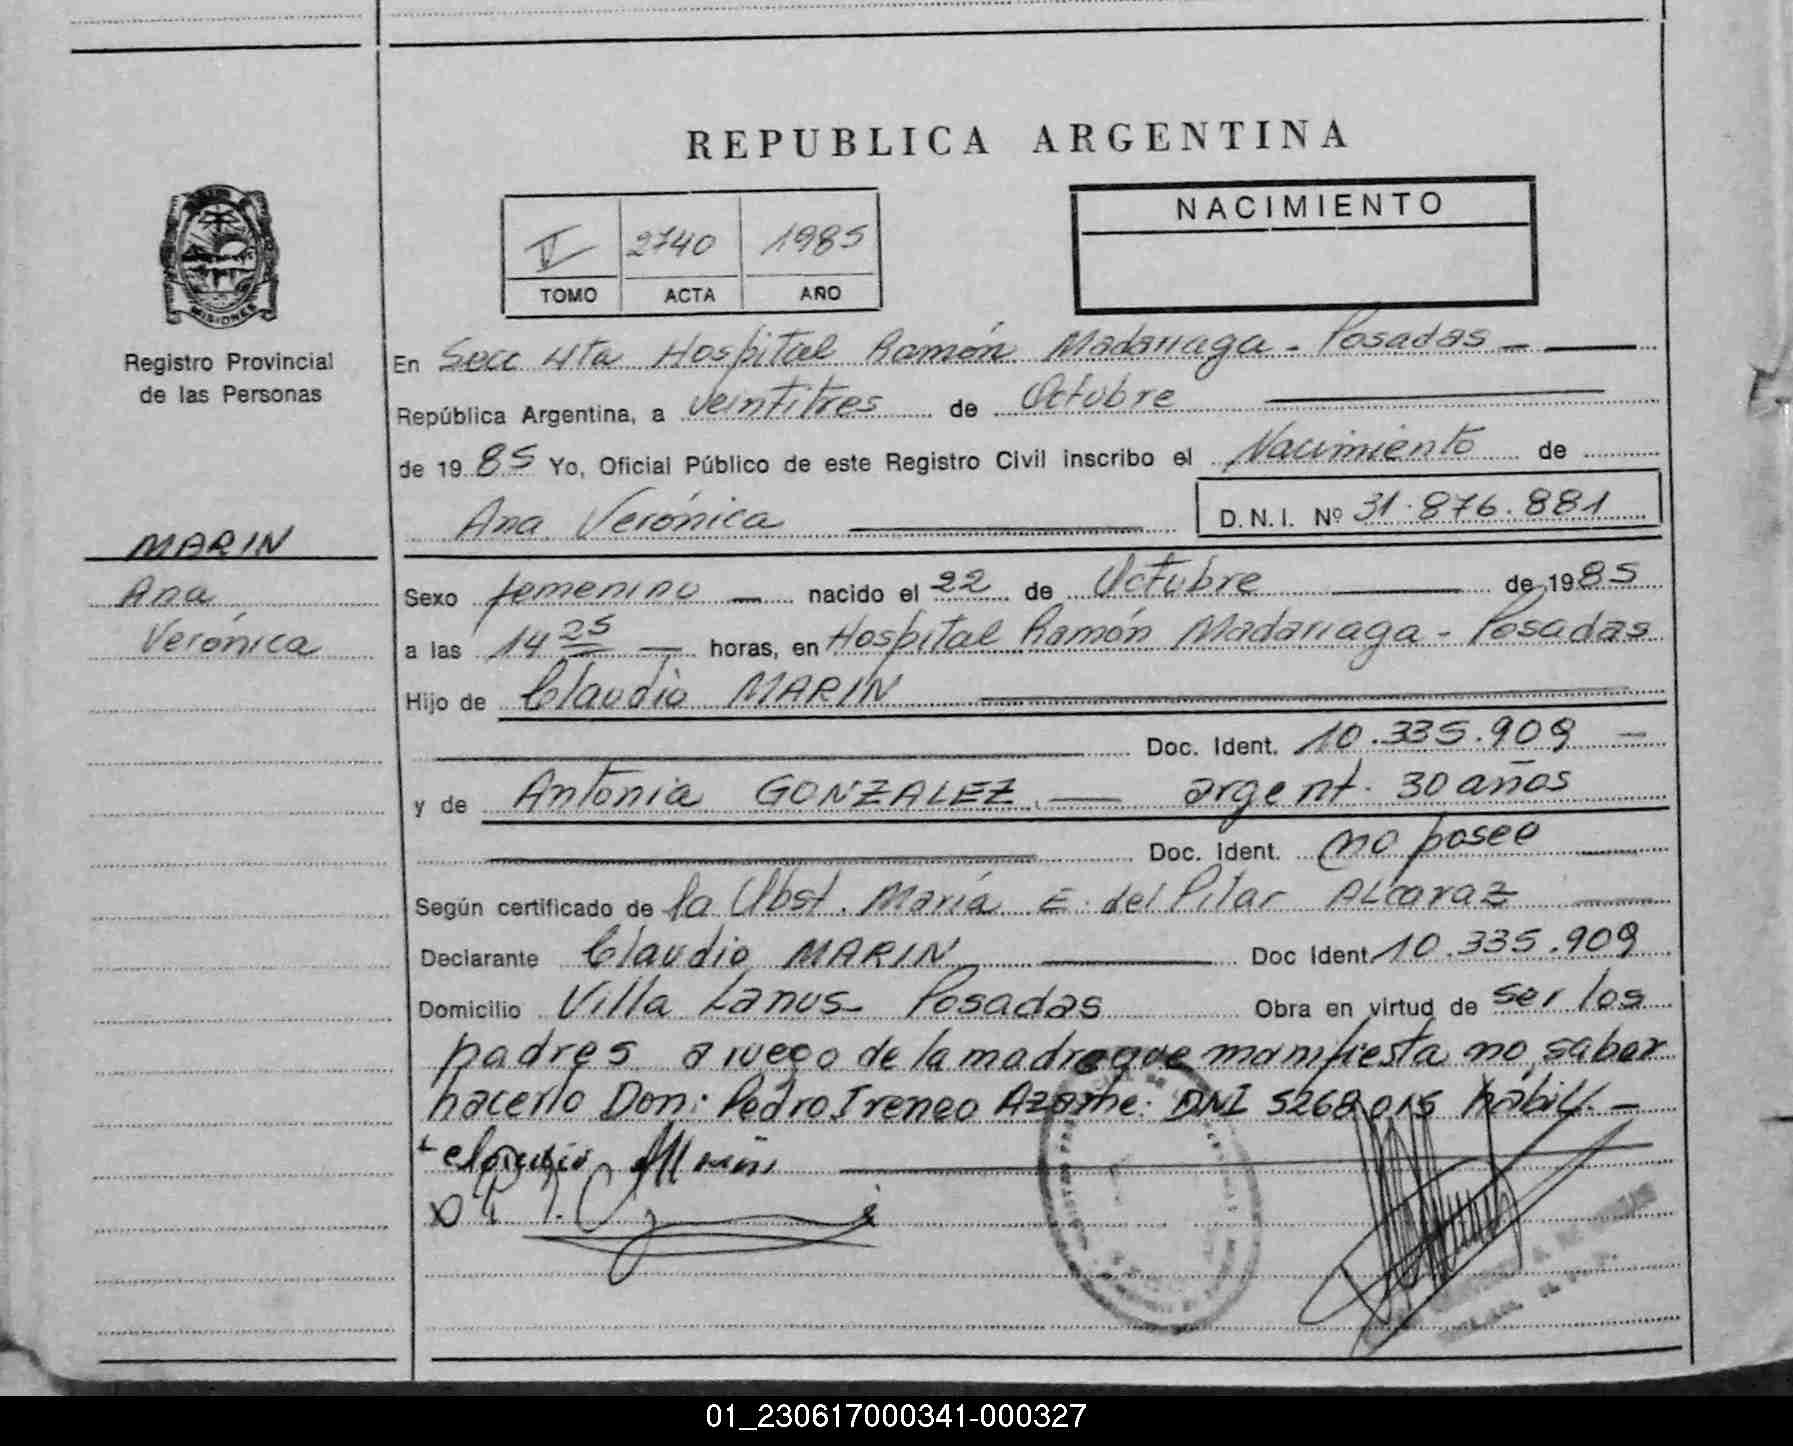 REPUBLICA ARGENTINA
MISIONES
Registro Provincial
de las Personas
V 2740 1985
TOMO ACTA AÑO
NACIMIENTO
En Secc 4ta Hospital Ramón Madariaga - Posadas -
República Argentina, a veintitres de Octubre
de 1985 Yo, Oficial Público de este Registro Civil inscribo el Nacimiento de
Ana Verónica D.N.I. Nº 31.876.881
MARIN
Ana
Verónica
Sexo femenino nacido el 22 de Octubre de 1985
a las 14 25 horas, en Hospital Ramón Madariaga - Posadas
Hijo de Claudio MARIN
Doc. Ident. 10.335.909
y de Antonia GONZALEZ. argent. 30 años
Doc. Ident. no posee
Según certificado de la Obst. María E. del Pilar ALcaraz
Declarante Claudio MARIN Doc Ident. 10.335.909
Domicilio Villa Lanus - Posadas Obra en virtud de ser los
padres a ruego de la madre que manifiesta no saber
hacerlo Don: Pedro Ireneo DNI 5268015 hábil. -
01_230617000341-000327